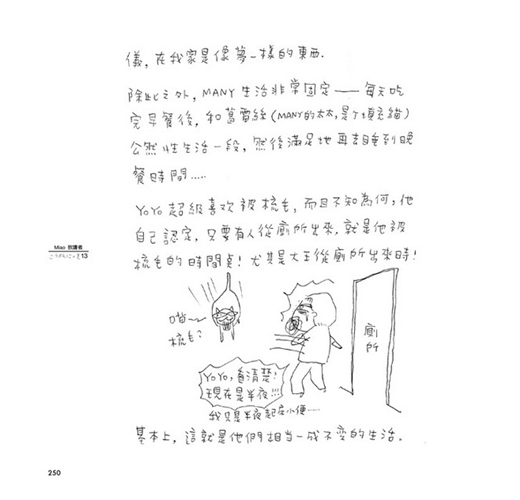 儀，在我家是像夢一樣的東西．
除此之外，MANY生活非常固定——每天吃
完早餐後，和葛雷絲(MANY的太太，是個填充貓)
公然性生活一段，然後滿足地再去睡到晚
餐時間.....
YoYo超級喜欢被梳毛，而且不知為何，他
自己認定，只要有人從廁所出來，就是他被
梳毛的時間点！尤其是大王從廁所出來時！
Mao 飼讀者
13
喵~~
梳毛？
廁所
YoYo，看清楚！
現在是半夜!!!
我只是半夜起床小便……
基本上，這就是他們相當一成不變的生活．
250